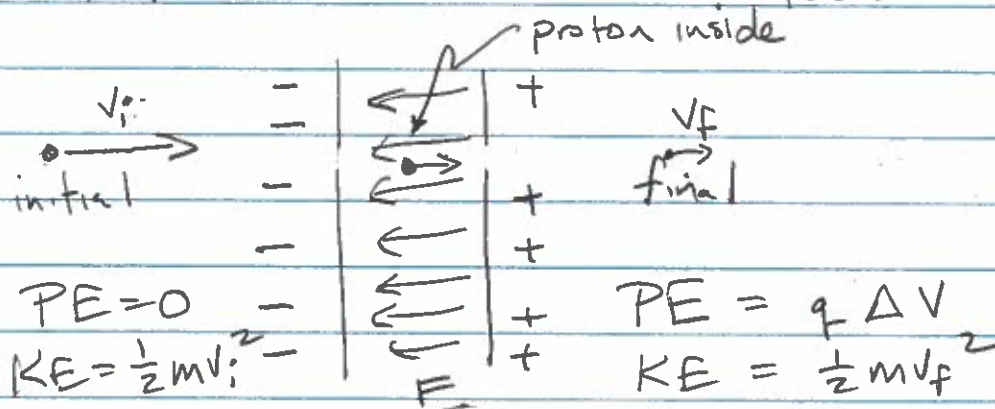 proton inside
Vi
Vf
initial
final
PE = 0
KE = ½mvi²
PE = q ΔV
KE = ½mvf²
E